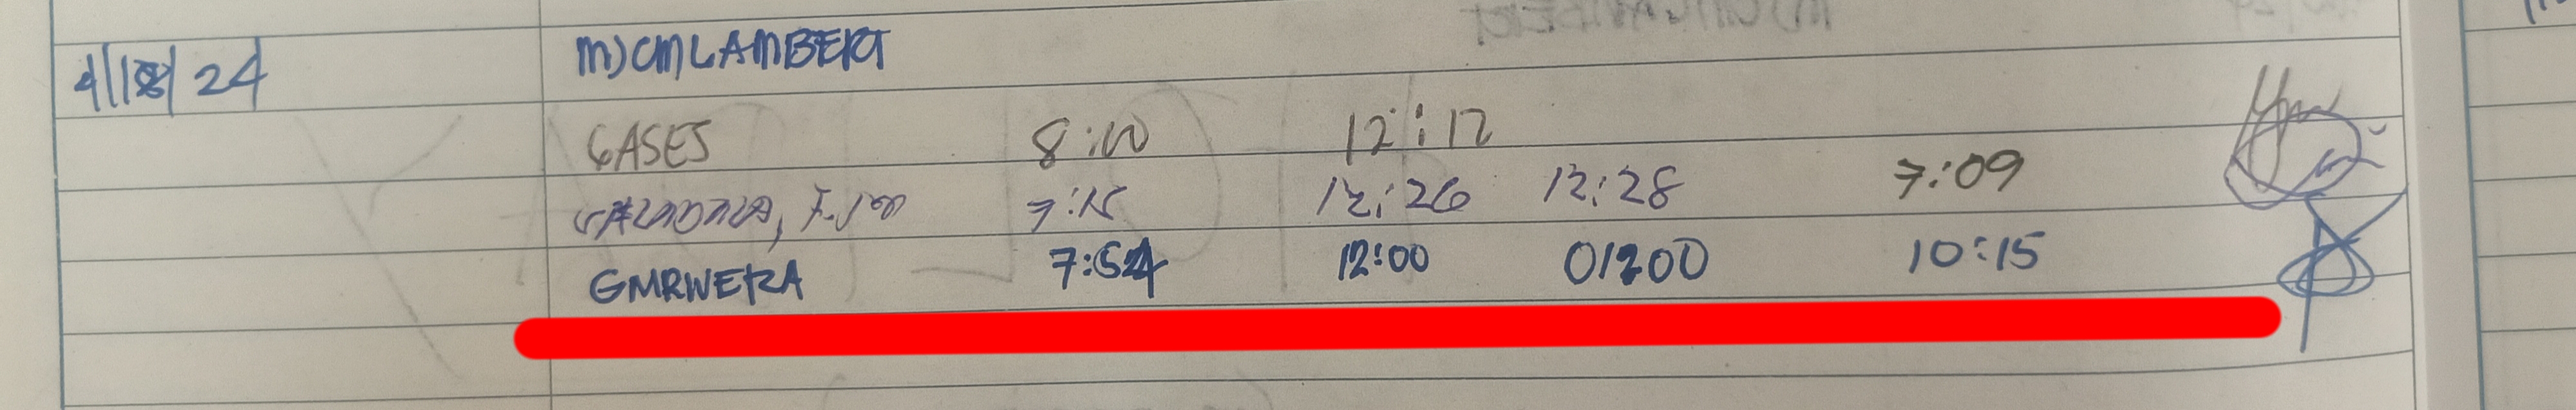 4/18/24 MJCMLAMBERT
GASES 8:10 12:12
7:15 12:26 12:28 7:09
GMRWERA 7:54 12:00 01200 10:15